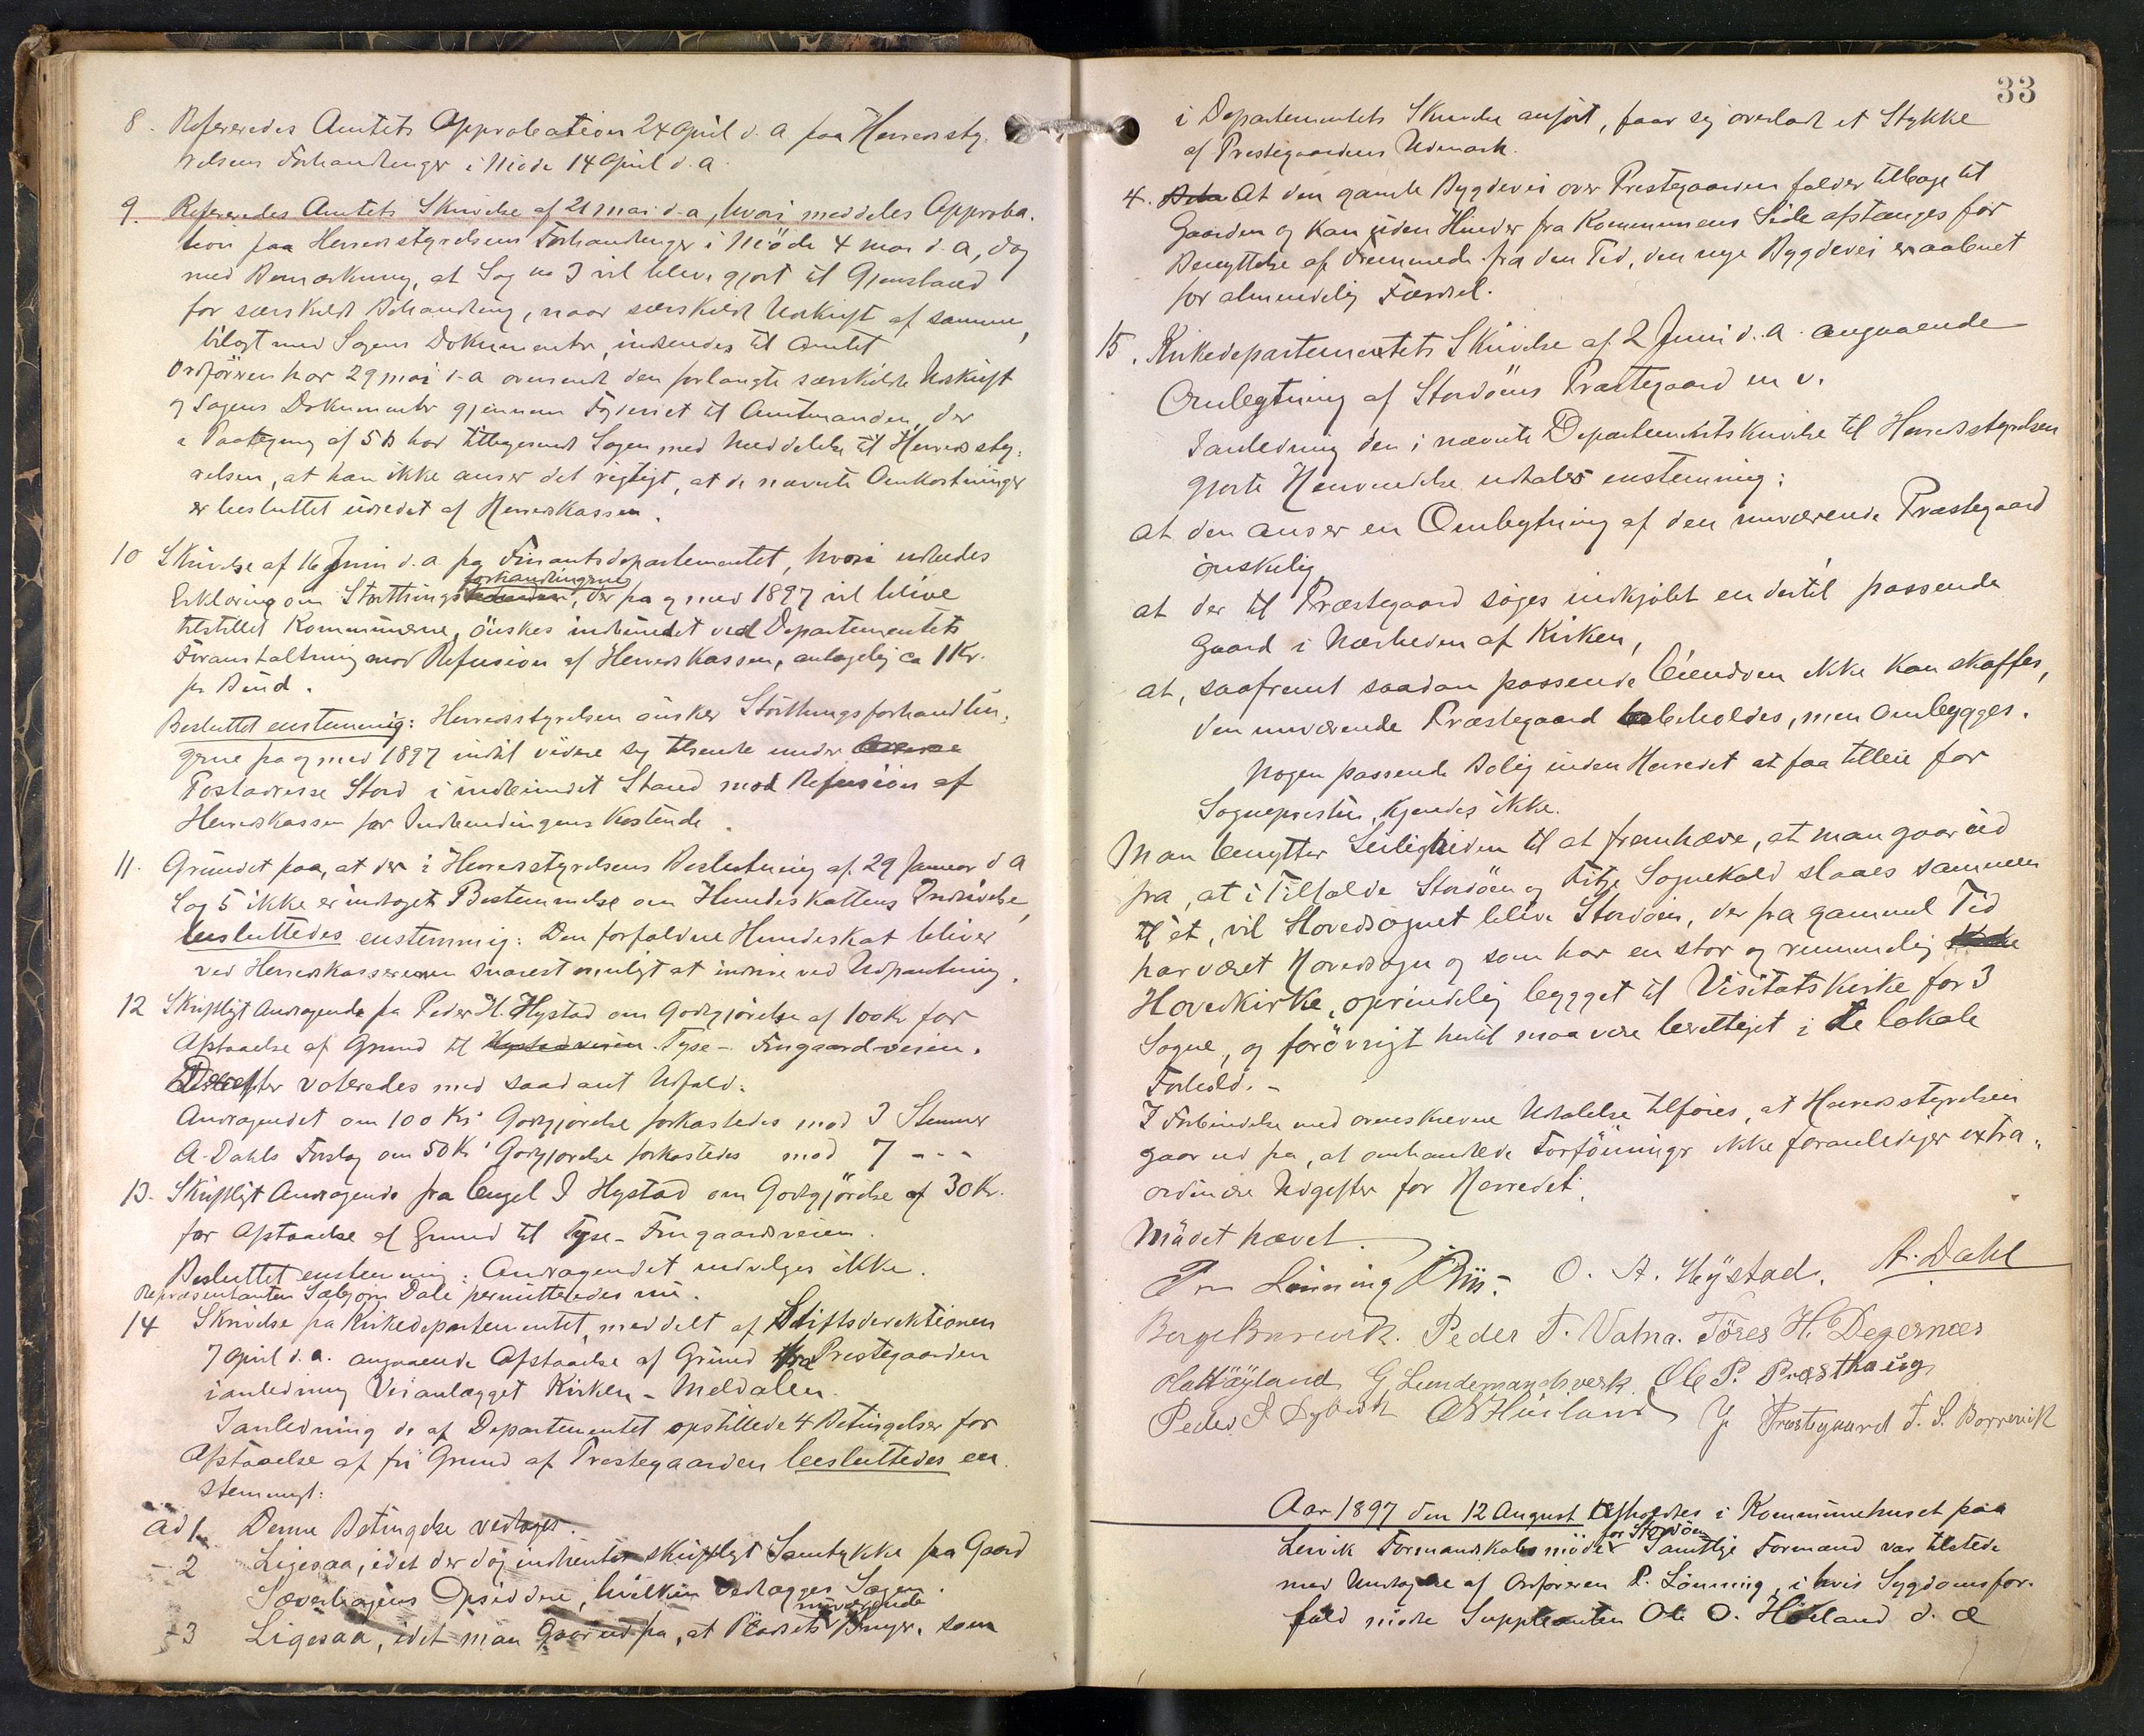 8. Refereredes Amtets Approbation 24 April d. a. paa Herredssty-
relsens Forhandlinger i Möde 14 April d. a.
9. Refereredes Amtets Skrivelse af 21 mai d. a, hvori meddeles Approba-
tion paa Herredsstyrelsens Forhandlinger i Möde 4 mai d. a, dog
med Bemærkning, at Sag no 3 vil blive gjort til Gjenstand
for særskildt Behandling, naar særskildt Udskrift af samme,
bilagt med Sagens Dokumenter, indsendes til Amtet
Ordföreren har 29 mai d. a oversendt den forlangte særskildte Udskrift
og Sagens Dokumenter gjennem Fogderiet til Amtmanden, der
i Paategning af 5 ds har tilbagesendt Sagen med Meddelelse til Herredssty-
relsen, at han ikke anser det rigtigt, at de nævnte Omkostninger
er besluttet udredet af Herredskassen.
10 Skrivelse af 16 Juni d. a fra Finantsdepartementet, hvori udbedes
forhandlingerne
Erklæring om Storthings, der fra og med 1897 vil blive
tilstillet Kommunerne, önskes indbundet ved Departementets
Foranstaltning mod Refusion af Herredskassen, antagelig ca 1 Kr.
pr Bind.
Besluttet enstemmig: Herredsstyrelsen önsker Storthingsforhandlin-
gerne fra og med 1897 indtil videre sig tilsendte under
Postadresse Stord i indbundet Stand mod Refusion af
Herredskassen for Indbindingens Kostende.
11. Grundet paa, at der i Herredsstyrelsens Beslutning af 29 Januar d a
Sag 5 ikke er indtaget Bestemmelse om Hundeskattens Inddrivelse,
besluttedes enstemmig: Den forfaldne Hundeskat bliver
ved Herredskassereren snarest muligt at inddrive ved Udpantning.
12 Skriftligt Andragende fra Peder H. Hystad om Godtgjörelse af 100 Kr for
Afstaaelse af Grund til Hystadveien Tyse - Fingaardveien.
Derefter voteredes med saadant Udfald:
Andragendet om 100 Kr Godtgjörelse forkastedes mod 3 Stemmer
A. Dahls Forslag om 50 Kr Godtgjörelse forkastedes mod 7 - - -
13. Skriftligt Andragende fra Engel J Hystad om Godtgjörelse af 30 Kr.
for Afstaaelse af Grund til Tyse - Fingaardsveien.
Besluttet enstemmig: Andragendet indvilges ikke.
Repræsentanten Sæbjörn Dale permitteredes nu.
14 Skrivelse fra Kirkedepartementet, meddelt af Stiftsdirektionen
7 April d. a. angaaende Afstaaelse af Grund fra Prestegaarden
ianledning Veianlægget Kirken - Meldalen.
Ianledning de af Departementet opstillede 4 Betingelser for
Afstaaelse af fri Grund af Prestegaarden besluttedes en-
stemmigt:
Ad 1. Denne Betingelse vedtages.
- 2 Ligesaa, idet der dog indhentes skriftligt Samtykke fra Gaard
Sæverhagens Opsiddere, hvilken vedlægges Sagen.
nuværende
- 3 Ligesaa, idet man gaar ud fra, at Pladsets Bruger, som
33
i Departementets Skrivelse anfört, faar sig overladt et Stykke
af Prestegaardens Udmark.
4. At den gamle Bygdevei over Prestegaarden falder tilbage til
Gaarden og kan uden Hinder fra Kommunens Side afstænges for
Benyttelse af Fremmede fra den Tid, den nye Bygdevei er aabnet
for almindelig Færdsel.
15. Kirkedepartementets Skrivelse af 2 Juni d. a. angaaende
Ombygning af Stordöens Præstegaard m v.
Ianledning den i nævnte Departementskrivelse til Herredsstyrelsen
gjorte Henvendelse udtales enstemmig:
at den anser en Ombygning af den nuværende Præstegaard
önskelig
at der til Præstegaard söges indkjöbt en dertil passende
Gaard i Nærheden af Kirken,
at, saafremt saadan passende Eiendom ikke kan skaffes,
den nuværende Præstegaard beholdes, men ombygges.
Nogen passende Bolig inden Herredet at faa tilleie for
Sognepresten, kjendes ikke.
Man benytter Leiligheden til at fremhæve, at man gaar ud
fra, at i Tilfælde Stordöen og Fitje Sognekald slaaes sammen
til et, vil Hovedsognet blive Stordöen, der fra gammel Tid
har været Hovedsogn og som har en stor og rummelig
Hovedkirke, oprindelig bygget til Visitatskirke for 3
Sogne, og forövrigt hertil maa være berettiget i de lokale
Forhold. -
I Forbindelse med ovenskrevne Udtalelse tilföies, at Herredsstyrelsen
gaar ud fra, at omhandlede Forföininger ikke foranlediger extra-
ordinære Udgifter for Herredet.
Mödet hævet.
P m Lönning O. A. Hystad. A. Dahl
Peder T. Vatna. Töres H. Degernæs
Ola Höyland G Lundemandsverk Ole P. Præsthaug
Peder Prestegaard T. S. Borrevik
Aar 1897 den 12 August afholdtes i Kommunehuset paa
for Stordöen
Lervik Formandskabsmöde. Samtlige Formænd var tilstede
med Undtagelse af Ordföreren P. Lönning, i hvis Sygdomsfor-
fald mödte Suppleanten Ole O. Höiland d. æ